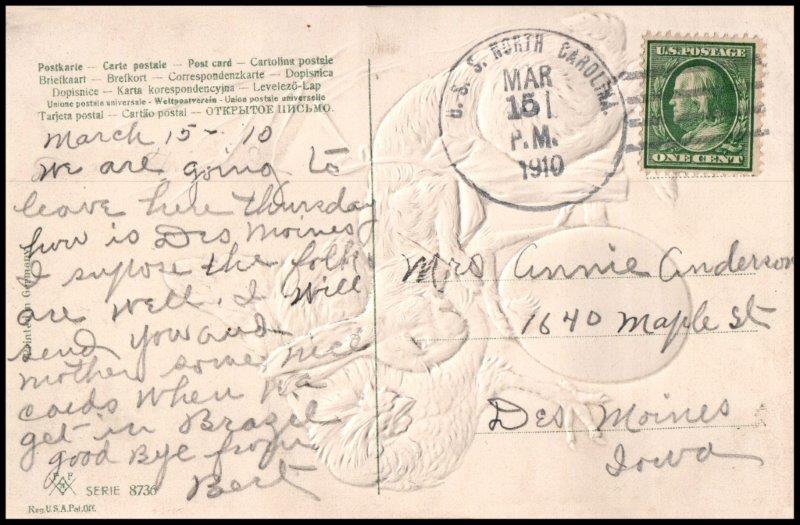 Postkarte — Carte postale — Post card — Cartolina postale
Briefkaart — Brefkort — Correspondenzkarte — Dopisnica
Dopisnice — Karta korespondencyjna — Levelező-Lap
Unione postale universale - Weltpostverein - Union postale universelle
Tarjeta postal — Cartão postal — ОТКРЫТОЕ ПИСЬМО.
March 15 - 10
We are going to
leave here thursday
how is Des Moines
I supose the folks
are well. I will
send you and
mother some nice
cards when we
get in Brazil
good Bye from
Bert
Printed in Germany
SERIE 8736
Reg. U.S.A. Pat. Off.
U. S. S. NORTH CAROLINA.
MAR
15
P.M.
1910
U.S. POSTAGE
ONE CENT
Mrs Annie Anderson
1640 Maple St
Des Moines
Iowa